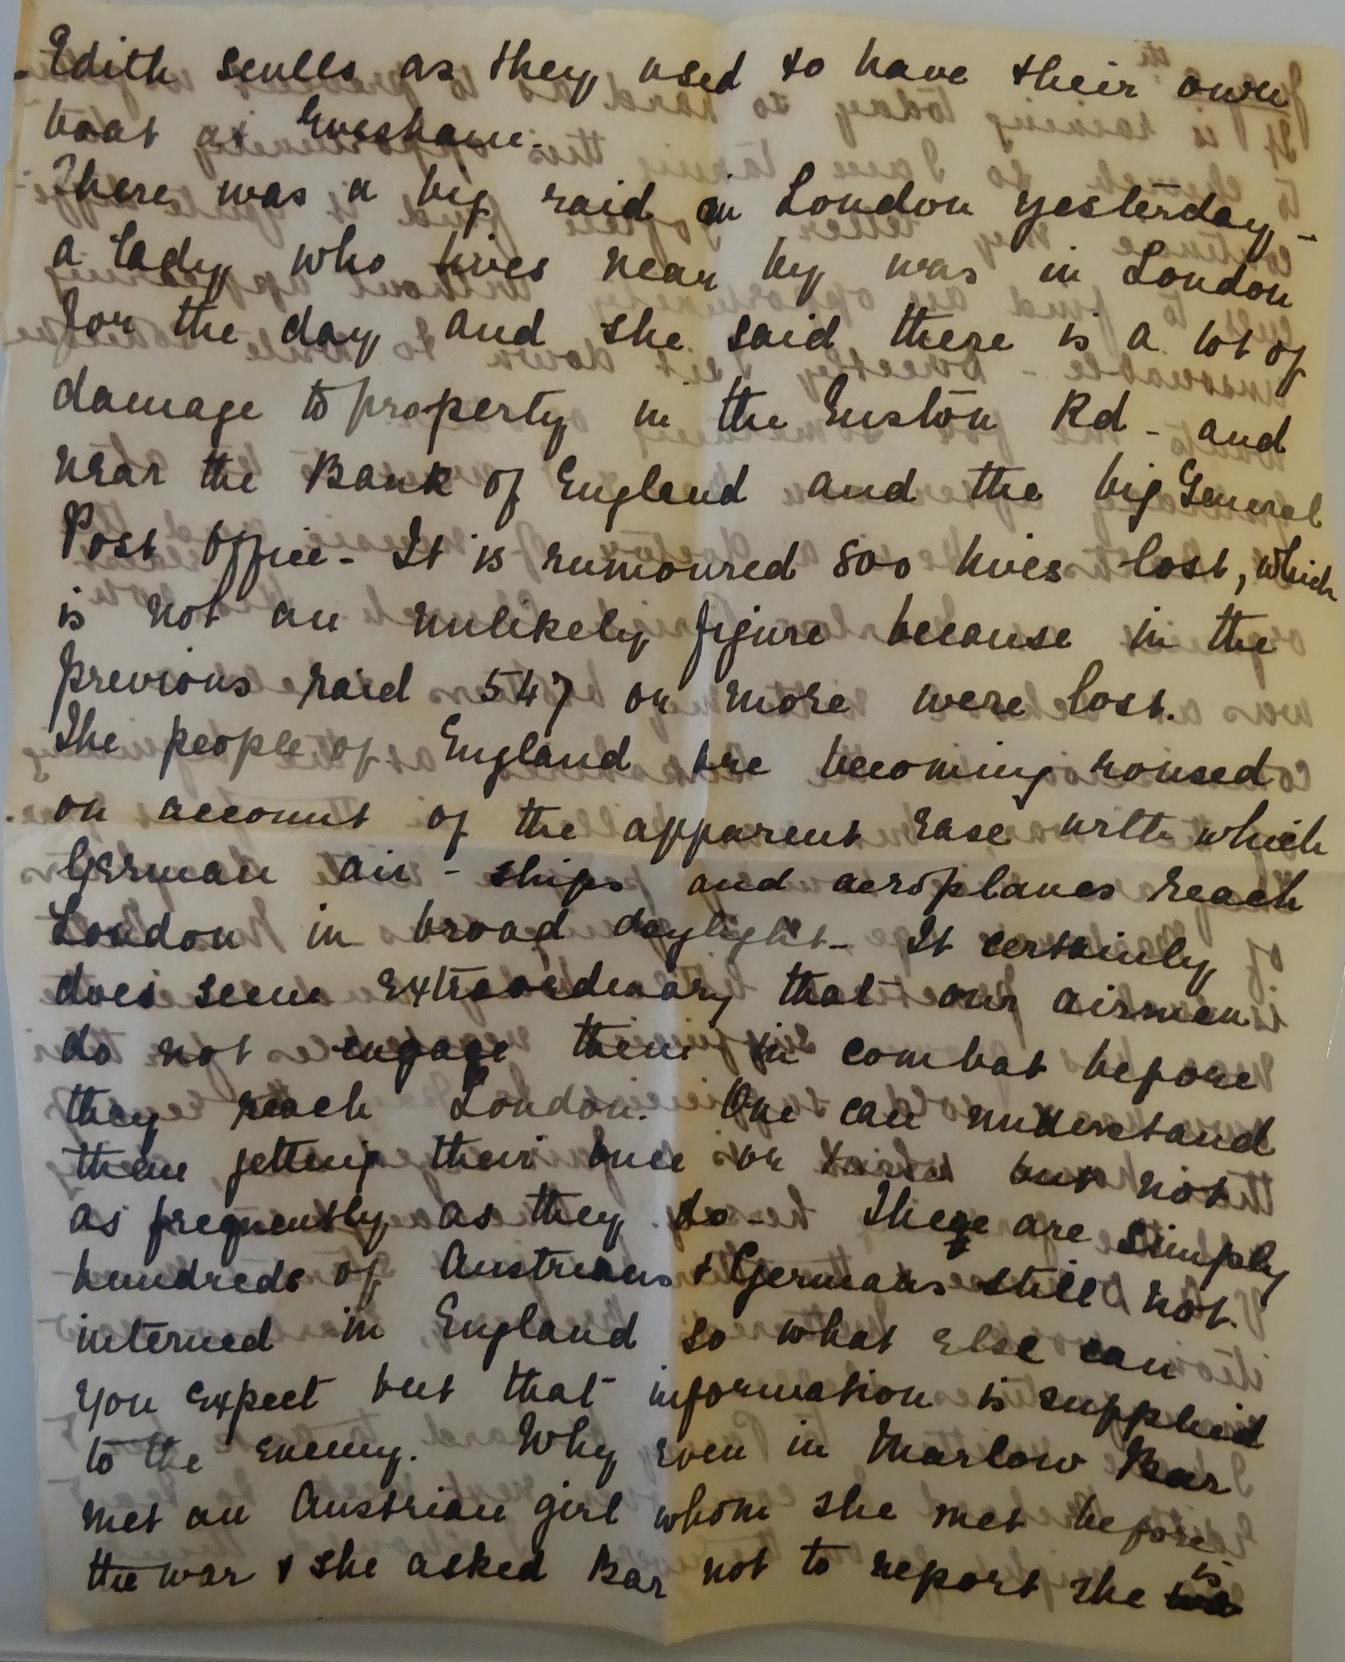 Edith sculls as they used to have their own
boat at Evesham.
There was a big raid in London yesterday -
a lady who lives near by was in London
for the day and she said there is a lot of
damage to property in the Euston Rd - and
near the Bank of England and the big General
Post Office - It is rumoured 800 lives lost, which
is not an unlikely figure because in the
previous raid 547 or more were lost.
The people of England are becoming roused
on account of the apparent ease with which
German air-ships and aeroplanes reach
London in broad daylight - It certainly
does seem extraordinary that our airmen
do not engage them in combat before
they reach London. One can understand
them getting their once or twice but not
as frequently as they do - There are simply
hundreds of Austrians & Germans still not
interned in England so what else can
you expect but that information is supplied
to the enemy. Why even in Marlow Bar
met an Austrian girl whom she met before
the war & she asked Bar not to report she is